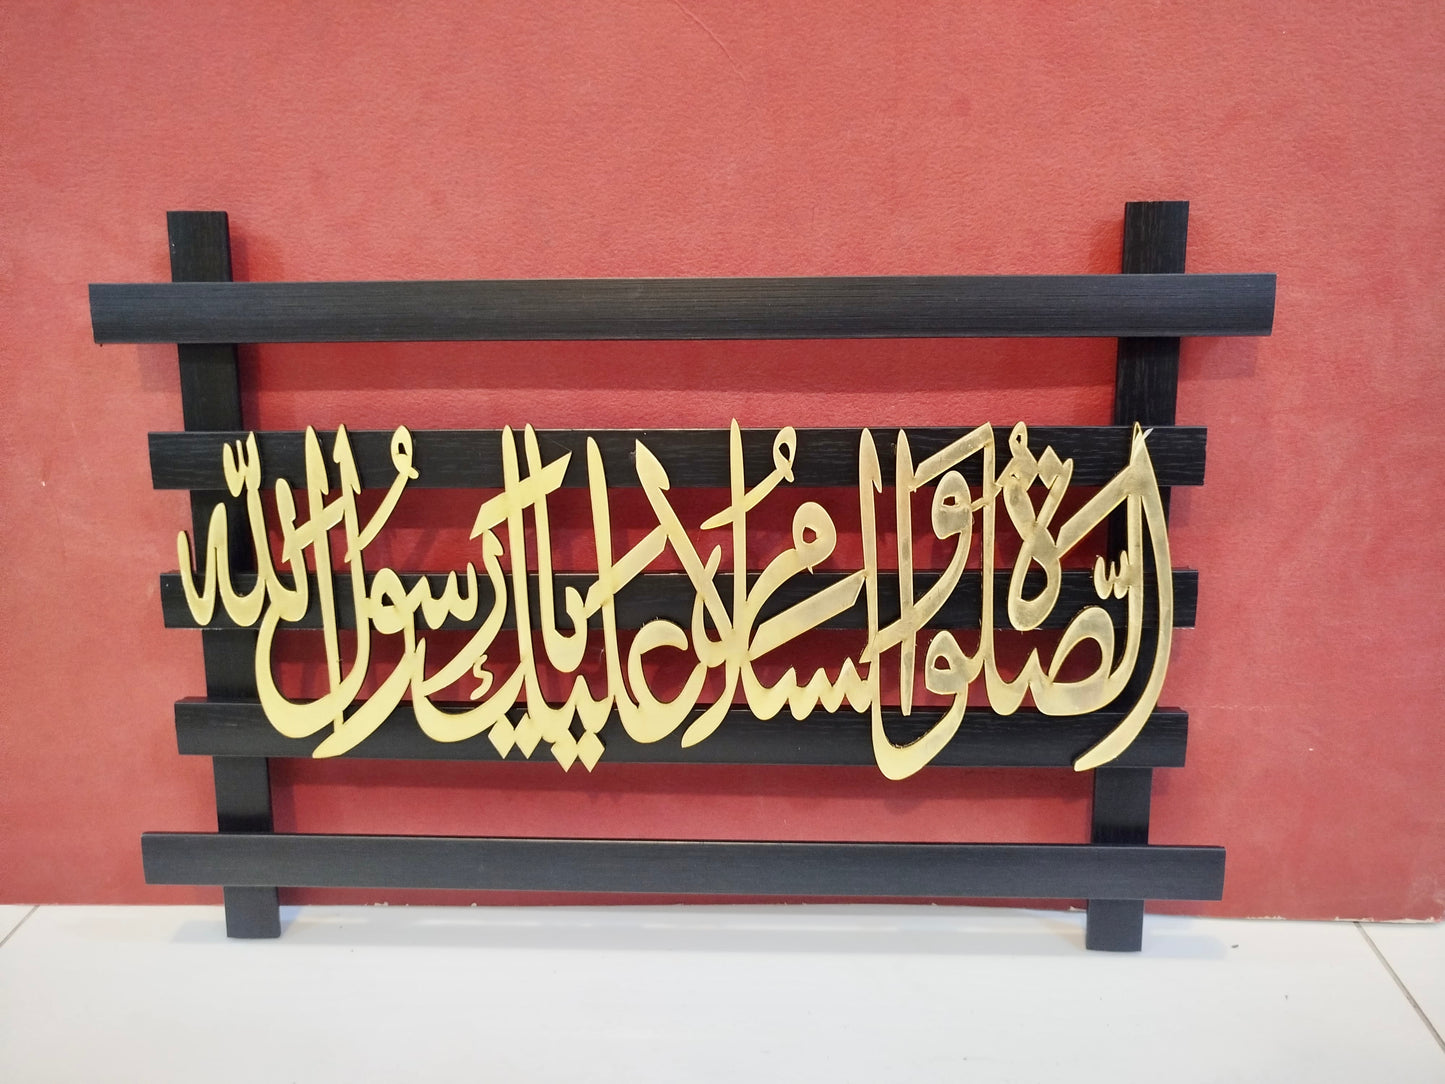 الصّلوٰةُ وَالسلامُ عليك يا رسولُ اللّٰه